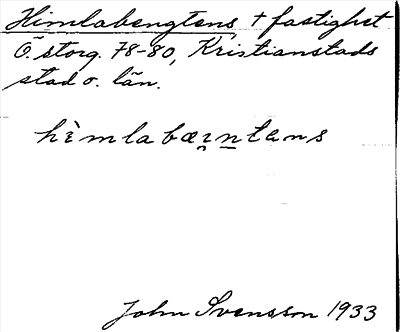 Himlabengtens † fastighet
Ö. storg. 78-80, Kristianstads
stad o. län.
hìmlabæɪ̯n̲tɛns
John Svensson 1933